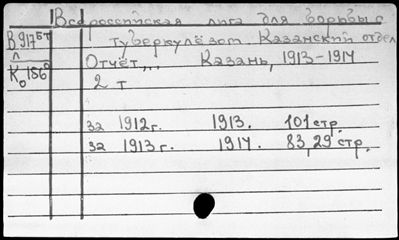 Всероссийская лига для борьбы с
В917бт туберкулёзом. Казанский отдел
л
Отчёт,.. Казань, 1913-1914
К0186°
2 т
за 1912г. 1913. 101 стр.
за 1913г. 1914. 83,29 стр.